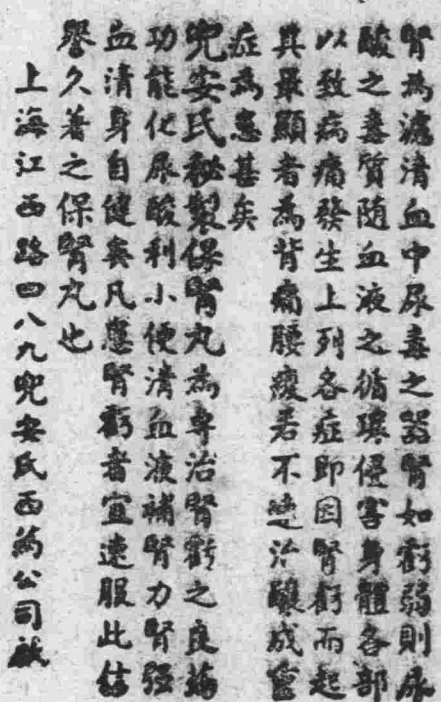 腎為濾清血中尿毒之器腎如虧弱則尿
酸之毒質随血液之循環侵害身體各部
以致病痛發生上列各症即因腎虧而起
其最顯者為背痛腰痠若不速治釀成
症為患甚矣
兜安氏秘製保腎丸為專治腎虧之良葯
功能化尿酸利小便清血液補腎力腎强
血清身自健矣凡患腎虧者宜速服此信
譽久著之保腎丸也
上海江西路四八九兜安氏西葯公司啟